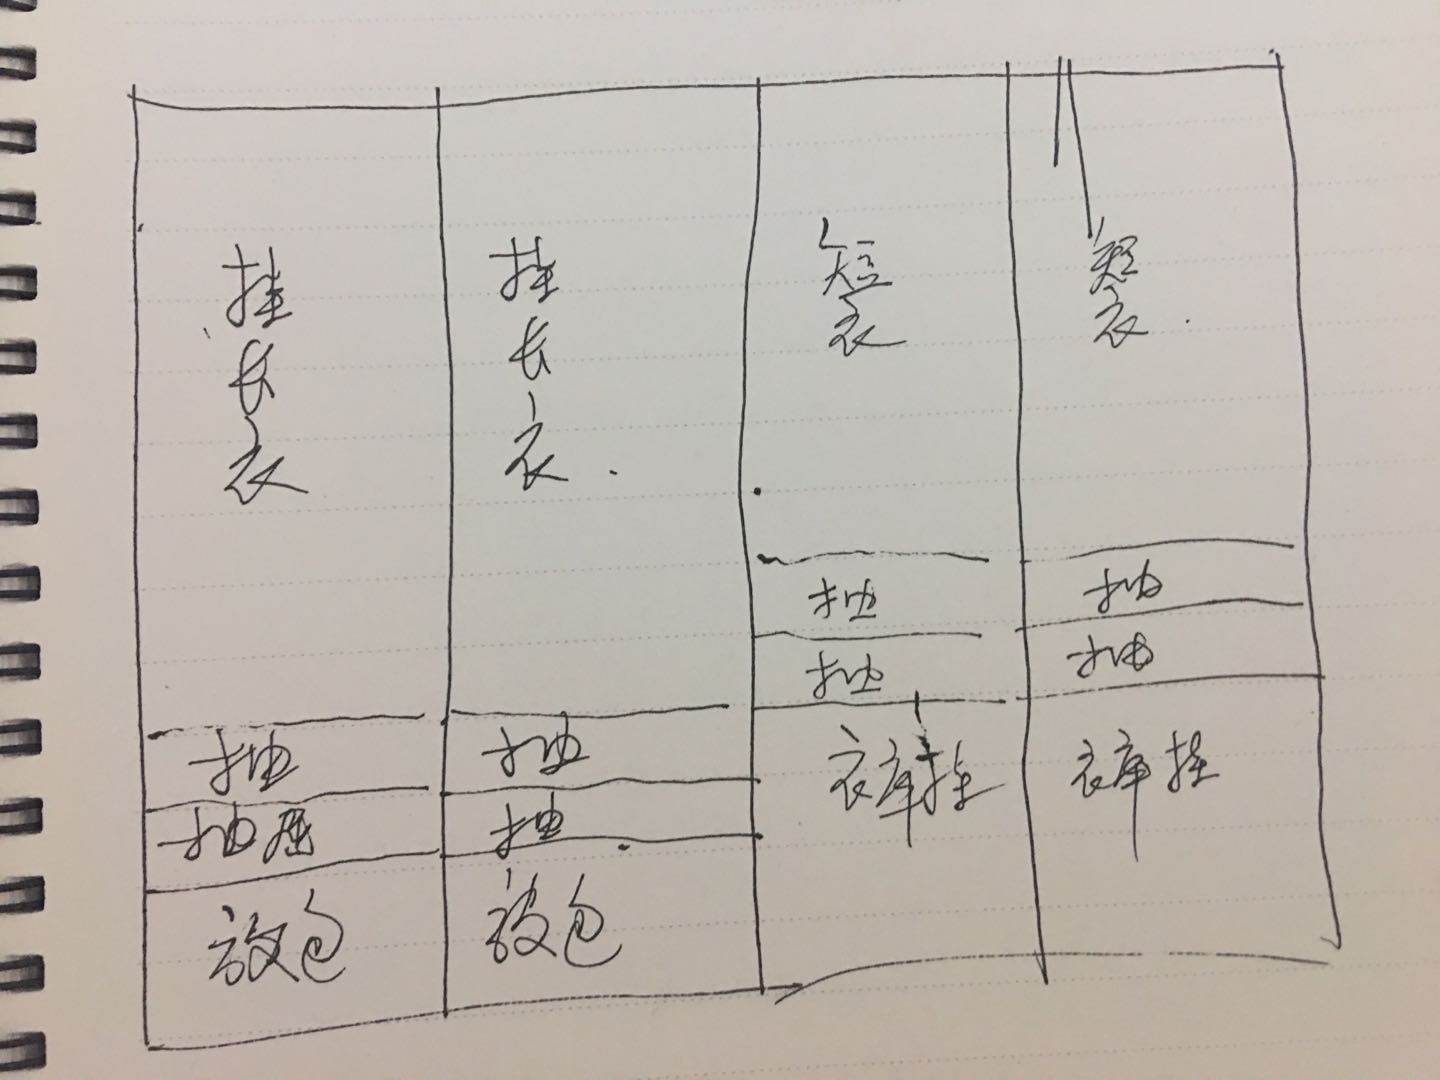 挂长衣
挂长衣
短衣
短衣
抽
抽
抽
抽
抽
抽
裤挂
裤挂
抽屉
抽
放包
放包